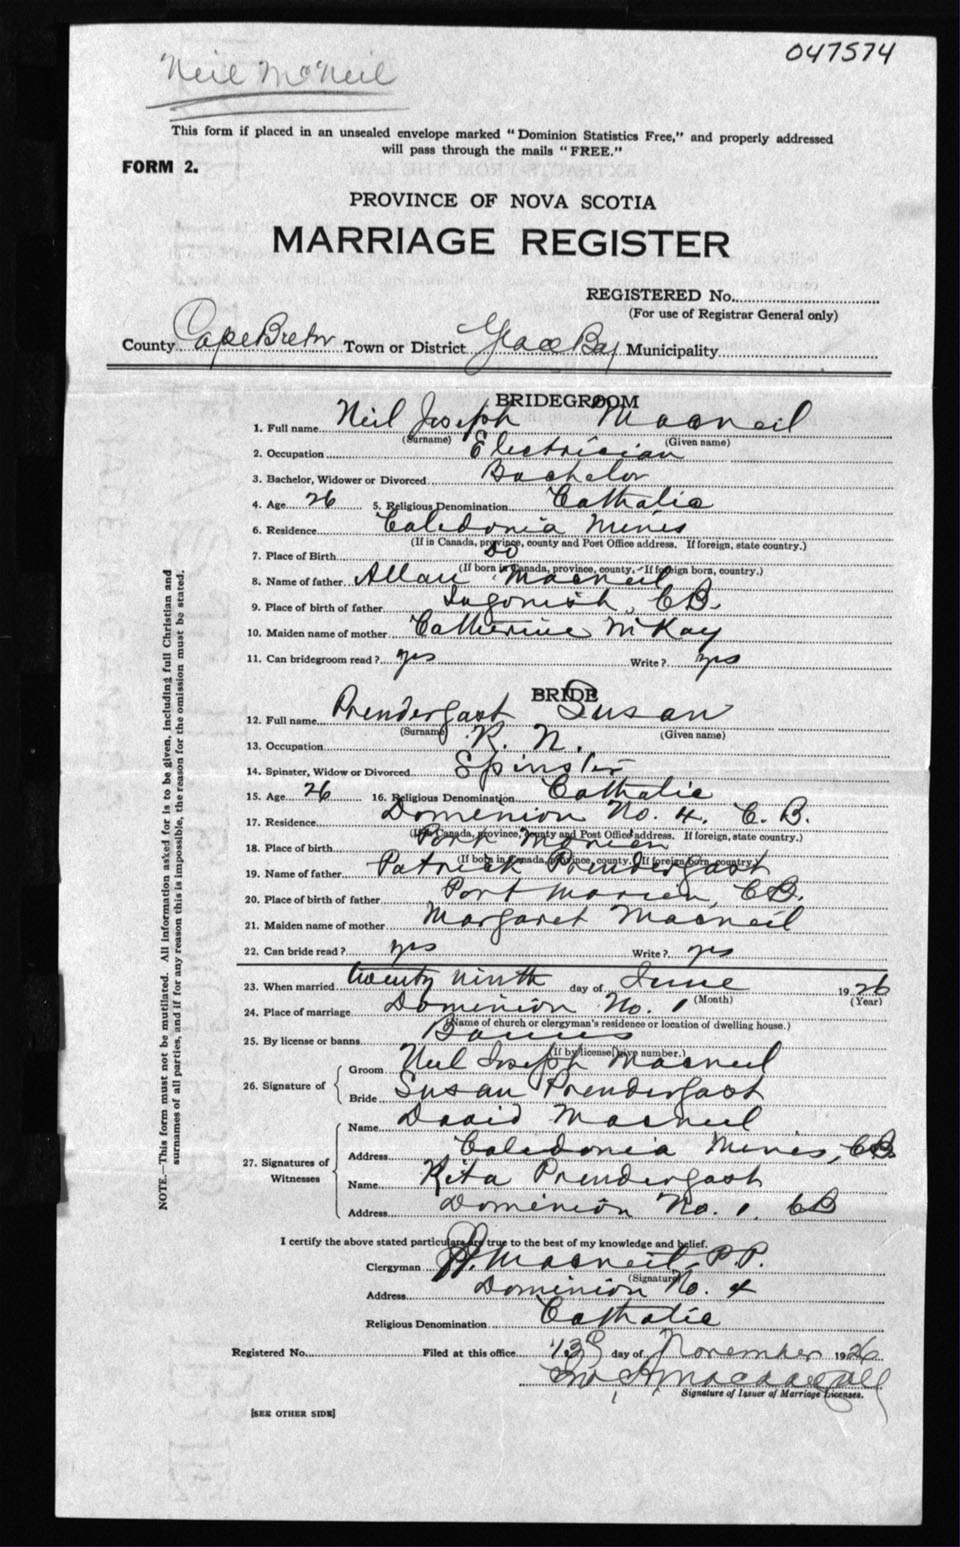 047574
Neil McNeil
This form if placed in an unsealed envelope marked "Dominion Statistics Free," and properly addressed
will pass through the mails "FREE."
FORM 2.
PROVINCE OF NOVA SCOTIA
MARRIAGE REGISTER
REGISTERED No.
(For use of Registrar General only)
County Cape Breton Town or District Glace Bay Municipality
BRIDEGROOM
1. Full name Neil Joseph Macneil
(Surname) (Given name)
2. Occupation Electrician
3. Bachelor, Widower or Divorced Bachelor
4. Age 26 5. Religious Denomination Catholic
6. Residence Caledonia Mines
(If in Canada, province, county and Post Office address. If foreign, state country.)
7. Place of Birth Do
(If born in Canada, province, county. If foreign born, country.)
8. Name of father Allan Macneil
9. Place of birth of father Ingonish, C.B.
10. Maiden name of mother Catherine McKay
11. Can bridegroom read? yes Write? yes
BRIDE
12. Full name Prendergast Susan
(Surname) (Given name)
13. Occupation R. N.
14. Spinster, Widow or Divorced Spinster
15. Age 26 16. Religious Denomination Catholic
17. Residence Dominion No. 4. C. B.
(If in Canada, province, county and Post Office address. If foreign, state country.)
18. Place of birth Port Morien
(If born in Canada, province, county. If foreign born, country.)
19. Name of father Patrick Prendergast
20. Place of birth of father Port Morien, C.B.
21. Maiden name of mother Margaret Macneil
22. Can bride read? yes Write? yes
23. When married twenty ninth day of June 1926
(Month) (Year)
24. Place of marriage Dominion No. 1
(Name of church or clergyman's residence or location of dwelling house.)
25. By license or banns Banns
(If by license, give number.)
26. Signature of Groom Neil Joseph Macneil
Bride Susan Prendergast
27. Signatures of Witnesses
Name David Macneil
Address Caledonia Mines, CB
Name Rita Prendergast
Address Dominion No. 1. CB
I certify the above stated particulars are true to the best of my knowledge and belief.
Clergyman Macneil, P.P.
(Signature)
Address Dominion No. 4
Religious Denomination Catholic
Registered No. Filed at this office 13 day of November 1926
Signature of Issuer of Marriage Licenses.
[SEE OTHER SIDE]
NOTE.—This form must not be mutilated. All information asked for is to be given, including full Christian and
surnames of all parties, and if for any reason this is impossible, the reason for the omission must be stated.